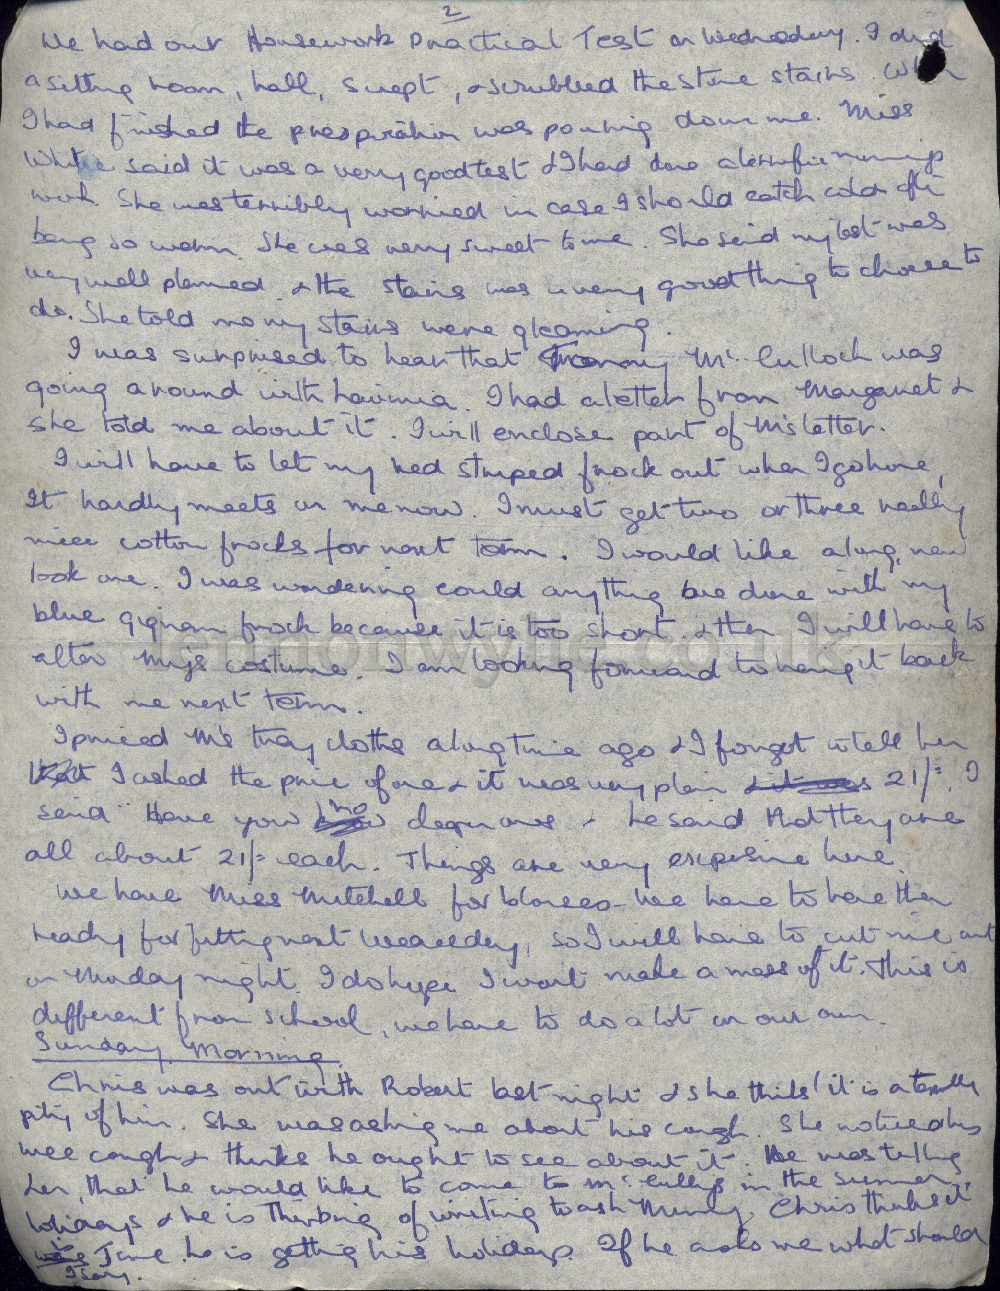 2
We had our Housework Practical Test on Wednesday. I did
a sitting room, hall, swept, & scrubbed the stone stairs. When
I had finished the prespiration was pouring down me. Miss
White said it was a very good test & I had done a terrific mornings
work She was terribly worried in case I should catch cold after
being so warm. She was very sweet to me. She said my test was
very well planned & the stairs was a very good thing to choose to
do. She told me my stairs were gleaming.
I was surprised to hear that Mc Culloch was
going around with Lavinia. I had a letter from Margaret &
she told me about it. I will enclose part of M's letter.
I will have to let my red striped frock out when I go home,
It hardly meets on me now. I must get two or three really
nice cotton frocks for next term. I would like a long "new
look" one. I was wondering could anything be done with my
blue gignam frock because it is too short. & then I will have to
alter costume. I am looking forward to having it back
with me next term.
I priced M's tray cloths a long time ago & I forgot to tell her
I asked the price of one & it was very plain & it was 21/=. I
said "Have you no dearer ones & he said that they are
all about 21/= each. Things are very expesive here.
We have Miss Mitchell for blouses - We have to have them
ready for fitting next Wednesday, so I will have to cut mine out
on Monday night. I do hope I won't make a mess of it. This is
different from school, we have to do a lot on our own.
Sunday Morning.
Chris was out with Robert last night & she thinks it is a terrible
pity of him. She was asking me about his cough. She noticed his
wee cough & thinks he ought to see about it. He was telling
her, that he would like to come to in the summer,
holidays & he is thinking of writing to ask Mummy. Chris thinks it
is June he is getting his holidays. If he asks me what should
I say.